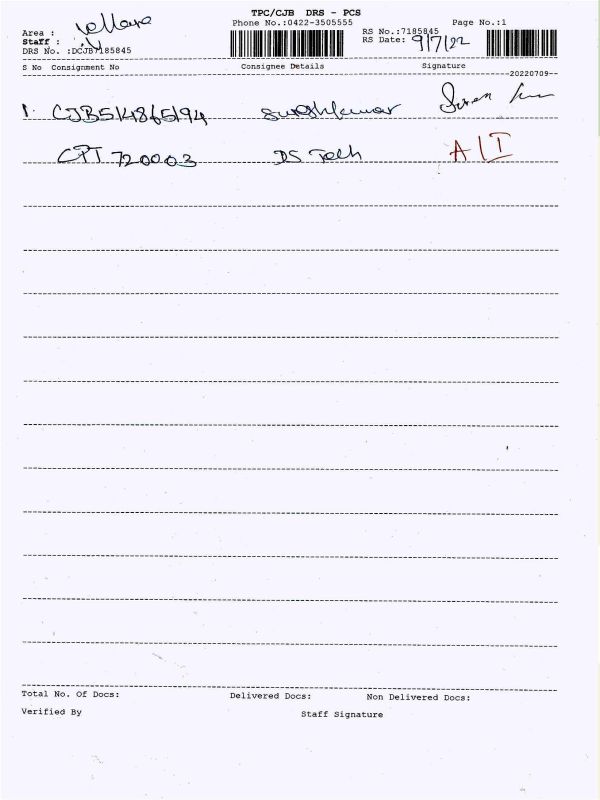 TPC/CJB DRS - PCS
Phone No.:0422-3505555 Page No.:1
Area :
Staff :
RS No.:7185845
RS Date: 9/7/22
DRS No. :DCJB7185845
S No Consignment No Consignee Details Signature
--20220709--
1. CJB514865194
CPT 720003 DS Tech A/I
Total No. Of Docs: Delivered Docs: Non Delivered Docs:
Verified By Staff Signature